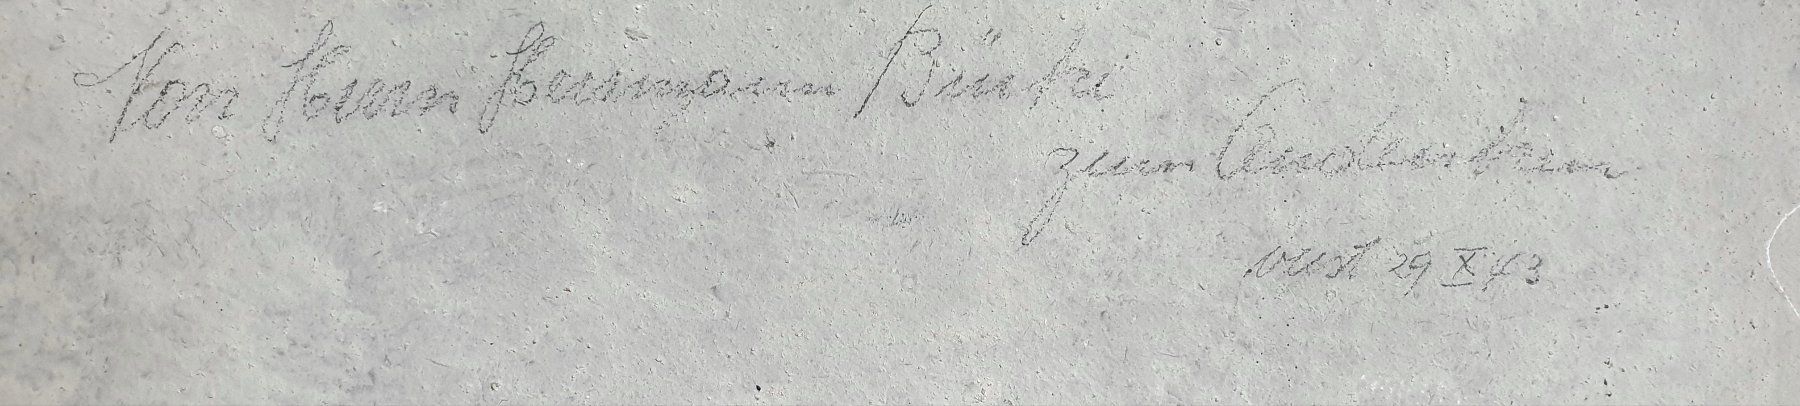 Von Herrn Hermann Bürki
zum Andenken
29 X 43